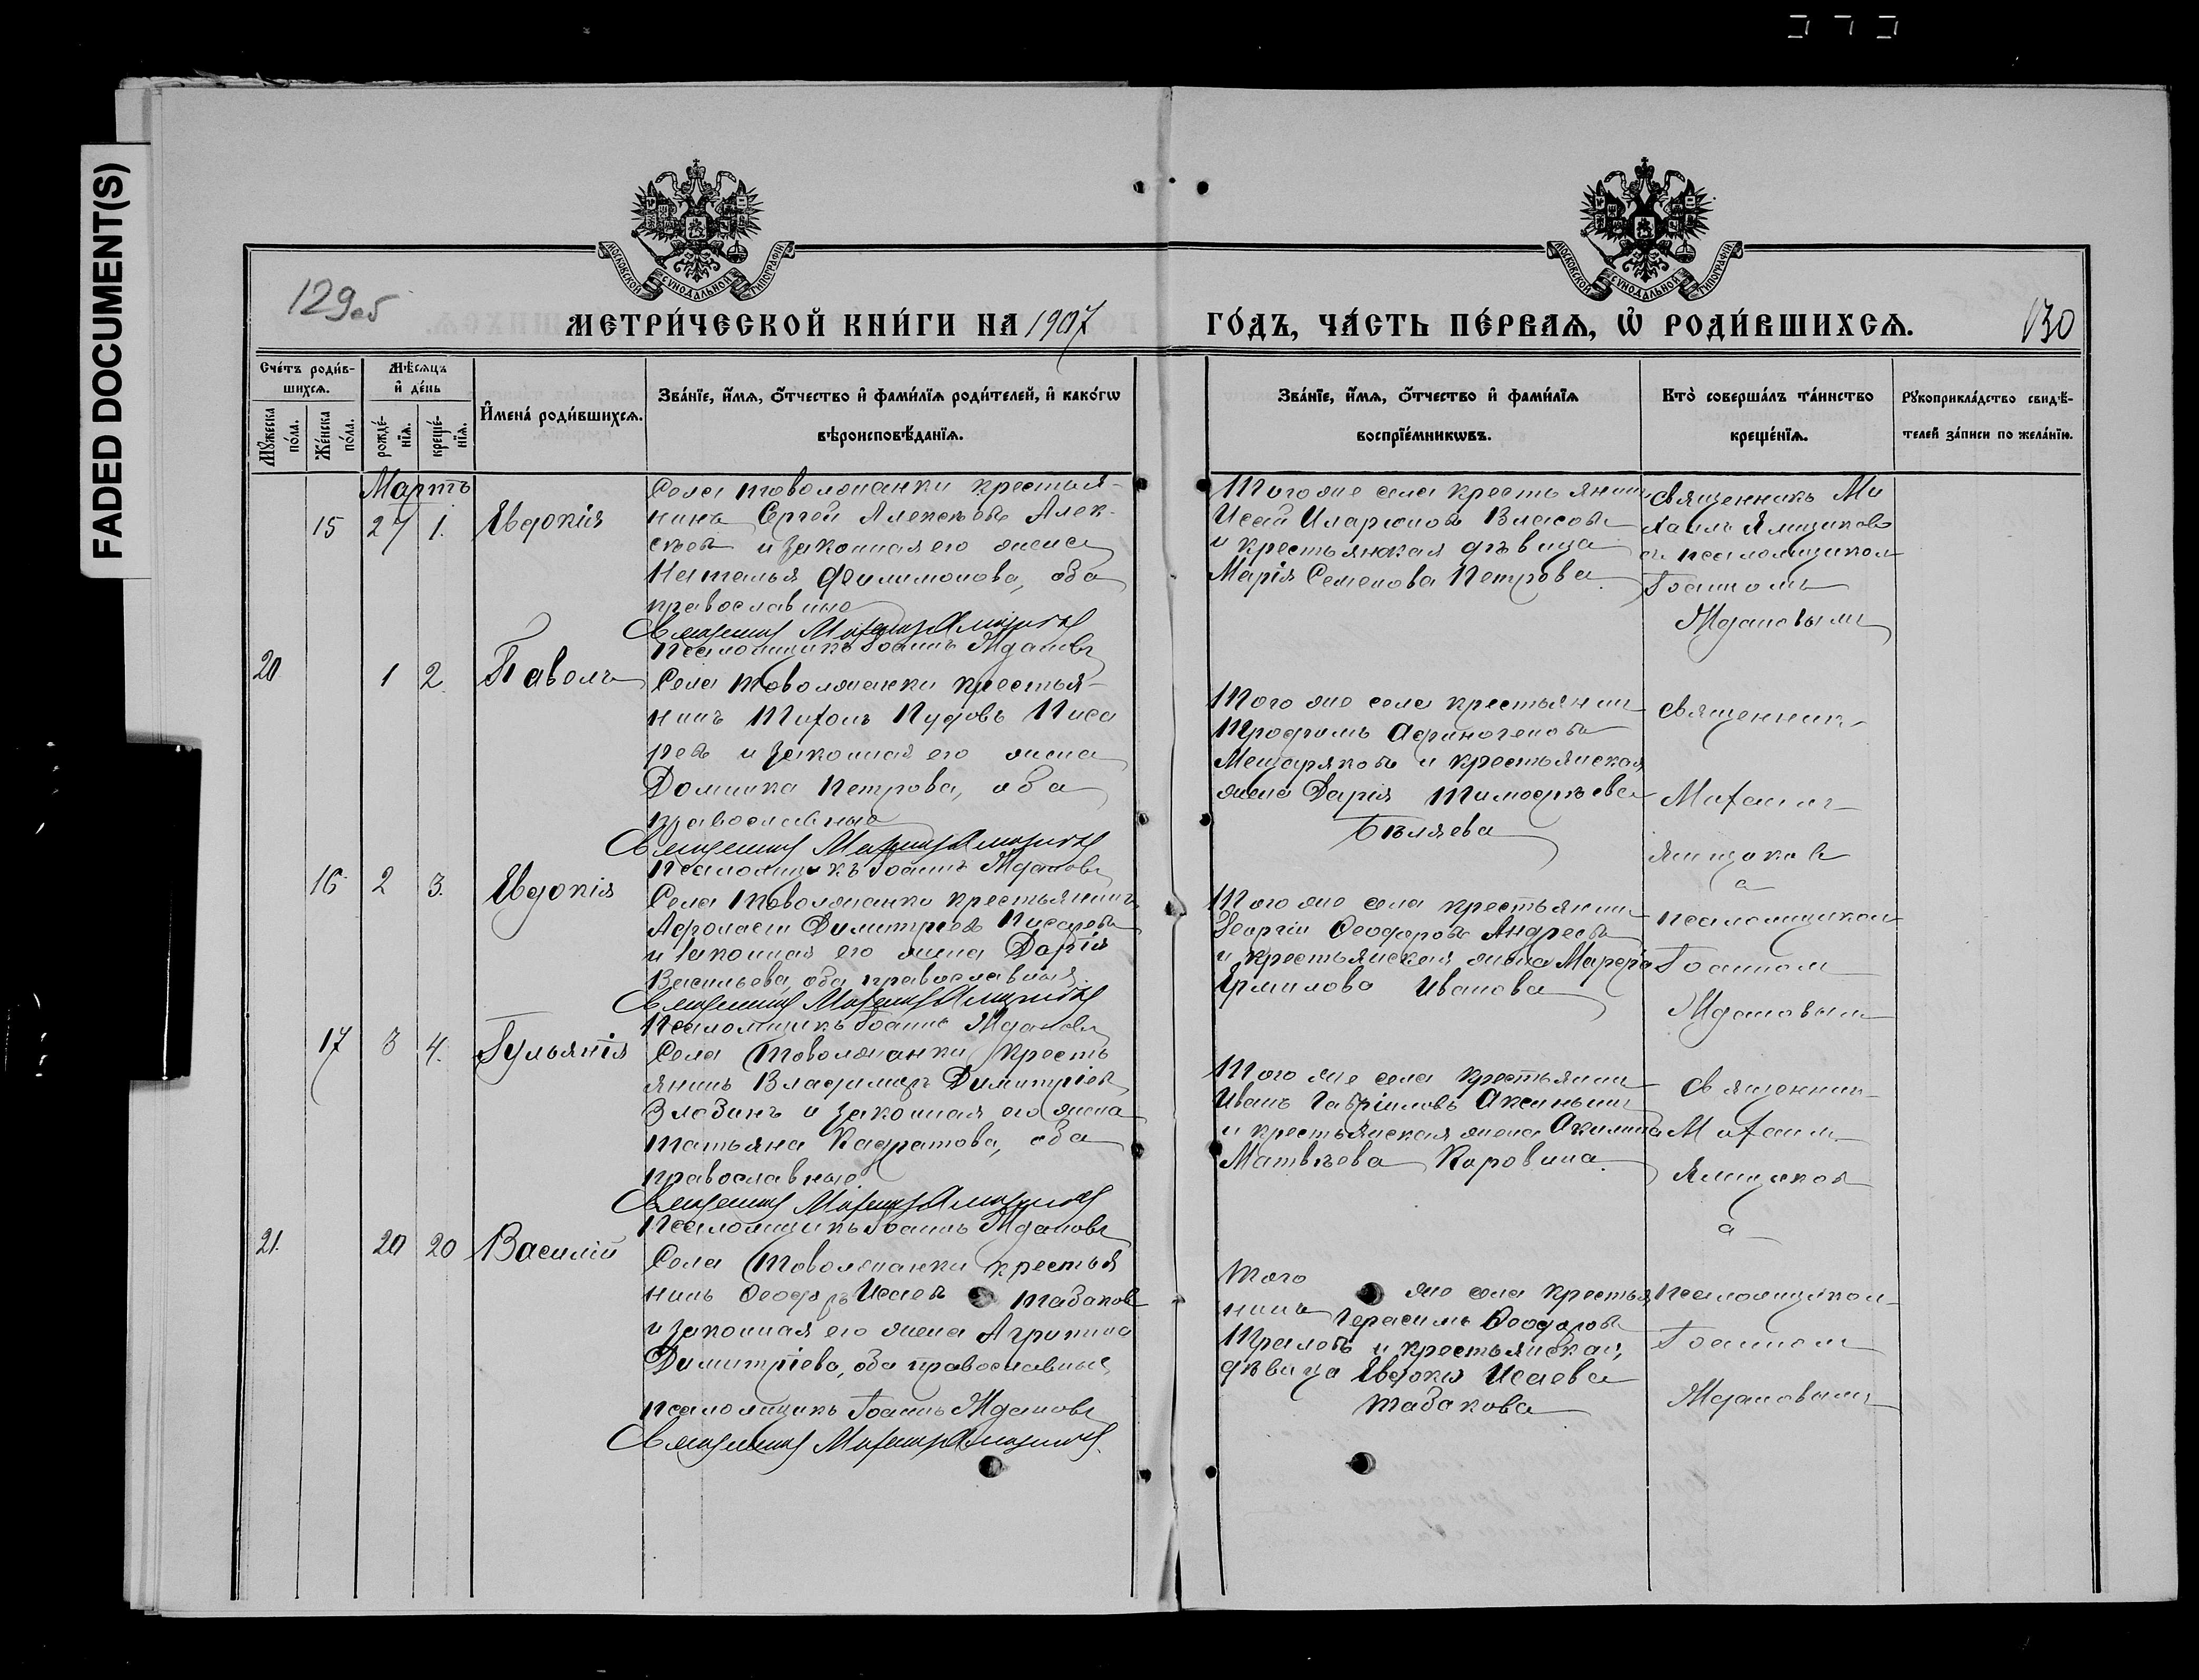 FADED DOCUMENT(S)
129об
МОСКОВСКОЙ СѴНОДАЛЬНОЙ ТИПОГРАФІИ
МОСКОВСКОЙ СѴНОДАЛЬНОЙ ТИПОГРАФІИ
МЕТРИ́ЧЕСКОЙ КНИ́ГИ НА 1907
ГО́ДЪ, ЧА́СТЬ ПЕ́РВАѦ, Ѡ҆ РОДИ́ВШИХСѦ.
130
Сче́тъ роди́в-
шихсѧ.
Мѣ́сѧцъ
и҆ де́нь
Мꙋ́жеска
по́ла.
Же́нска
по́ла.
рожде́-
нїѧ.
креще́-
нїѧ.
И҆мена̀ роди́вшихсѧ.
Зва́нїе, и҆́мѧ, ѻ҆́тчество и҆ фами́лїѧ роди́телей, и҆ како́гѡ
вѣроисповѣ́данїѧ.
Зва́нїе, и҆́мѧ, ѻ҆́тчество и҆ фами́лїѧ
воспрїе́мникѡвъ.
Кто̀ соверша́лъ та́инство
креще́нїѧ.
Рꙋкоприкла́дство свидѣ́-
телей за́писи по жела́нїю.
Мартъ
15 27 1. Евдокія
Села Товолжанки крестья-
нинъ Сергѣй Алексѣевъ Алек-
сѣевъ и законная его жена
Наталья Филимонова, оба
православные
Священникъ Михаилъ Ямщиковъ
Псаломщикъ Іоаннъ Ждановъ
Того же села крестьянинъ
Исай Иларіоновъ Власовъ
и крестьянская дѣвица
Марія Семенова Петрова.
Священникъ Ми
хаилъ Ямщиковъ
съ псаломщиком
Іоанномъ
Ждановымъ
20 1 2. Павелъ
Села Товолжанки крестья-
нинъ Тихонъ Пудовъ Писа
ревъ и законная его жена
Домника Петрова, оба
православные
Священникъ Михаилъ Ямщиковъ
Псаломщикъ Іоаннъ Ждановъ
Того же села крестьянин
Трофимъ Афиногеновъ
Мещеряковъ и крестьянская
жена Дарія Тимофѣева
Бѣляева
Священник
Михаилъ
Ямщиков
16. 2 3. Евдокія
Села Товолжанки крестьянинъ
Афонасій Димитріевъ Писаревъ
и законная его жена Дарія
Васильева, оба православныя
Священникъ Михаилъ Ямщиковъ
Псаломщикъ Іоаннъ Ждановъ
Того же села крестьянин
Георгій Ѳеодоровъ Андреевъ
и крестьянская жена
Ермилова Иванова
псаломщиком
Іоанном
Ждановым
17 3 4. Іульянія
Села Товолжанки кресть
янинъ Владимиръ Димитріевъ
Злобинъ и законная его жена
Татьяна Кадратова, оба
православные
Священникъ Михаилъ Ямщиковъ
Псаломщикъ Іоаннъ Ждановъ
Того же села крестьянин
Иванъ Гавріиловъ Аксиньин
и крестьянская жена Акилина
Матвѣева Коровина.
Священник
Михаил
Ямщиков
21. 20 20 Василій
Села Товолжанки крестья
нинъ Ѳеодоръ Исаевъ Табаков
и законная его жена Агрипина
Димитріева, оба православные
Псаломщикъ Іоаннъ Ждановъ
Священникъ Михаилъ Ямщиковъ.
Того же села крестья
нинъ Герасимъ Ѳеодоровъ
и крестьянская
дѣвица Евдокія Исаева
Табакова
псаломщиком
Іоанном
Ждановымъ